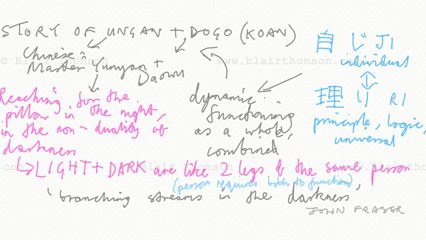 STORY OF UNGAN + DOGO (KOAN)
Chinese
Master Yunyan +
Daowu
Reaching for the
pillow in the night,
in the non-duality of
darkness
dynamic
functioning
as a whole,
combined
自 じ JI
individual
理 り RI
principle, logic,
universal
LIGHT + DARK are like 2 legs of the same person
(person requires both to function)
'branching streams in the darkness,
JOHN FRASER
www.blairthomson.